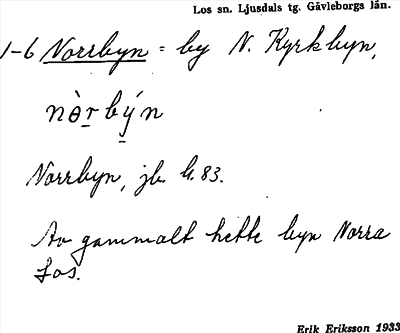 Los sn. Ljusdals tg. Gävleborgs län.
1-6 Norrbyn = by N. Kyrkbyn,
nòr̲bý̲n
Norrbyn, jb. k. 83.
Av gammalt hette byn Norra
Los.
Erik Eriksson 1933